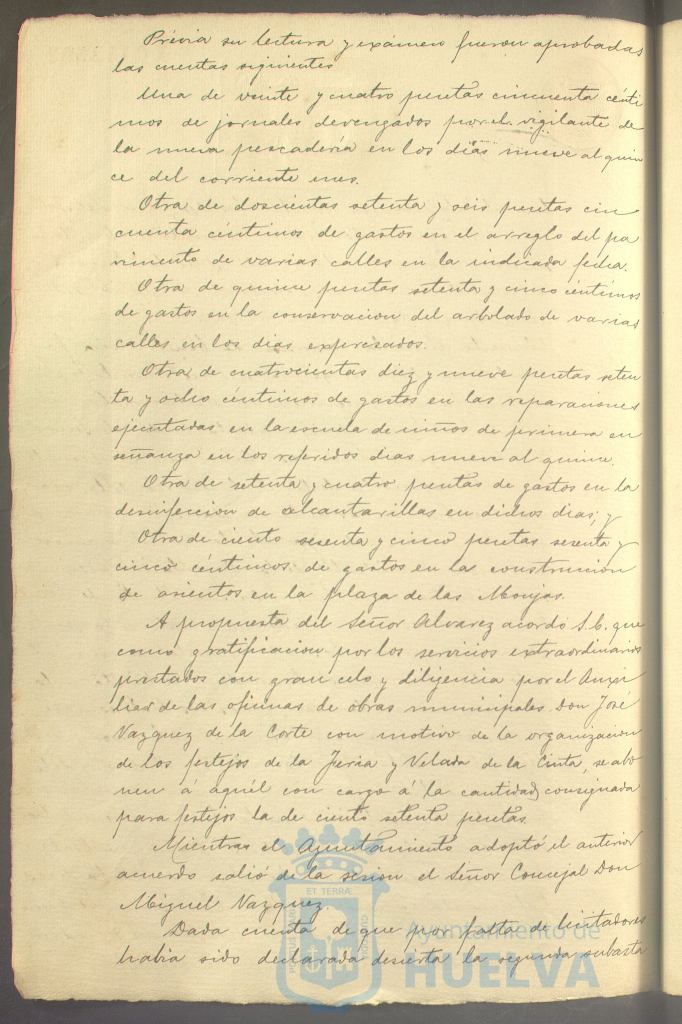 Prévia su lectura y exámen fueron aprobadas
las cuentas siguientes
Una de veinte y cuatro pesetas cincuenta cénti
mos de jornales devengados por el vigilante de
la nueva pescadería en los dias nueve al quin
ce del corriente mes.
Otra de doscientas setenta y seis pesetas cin
cuenta céntimos de gastos en el arreglo del pa
vimento de varias calles en la indicada fecha.
Otra de quince pesetas setenta y cinco céntimos
de gastos en la conservacion del arbolado de varias
calles en los dias expresados.
Otra de cuatrocientas diez y nueve pesetas seten
ta y ocho céntimos de gastos en las reparaciones
ejecutadas en la escuela de niños de primera en
señanza en los referidos dias nueve al quince.
Otra de setenta y cuatro pesetas de gastos en la
desinfeccion de alcantarillas en dichos dias; y
Otra de ciento sesenta y cinco pesetas sesenta y
cinco céntimos de gastos en la construcion
de asientos en la plaza de las Monjas.
A propuesta del Señor Alvarez acordó S.E. que
como gratificacion por los servicios extraordinarios
prestados con gran celo y diligencia por el Auxi
liar de las oficinas de obras municipales Don José
Vazquez de la Corte con motivo de la organizacion
de los festejos de la Feria y Velada de la Cinta, se abo
nen á aquél con cargo á la cantidad consignada
para festejos la de ciento setenta pesetas.
Mientras el Ayuntamiento adoptó el anterior
acuerdo salió de la sesion el Señor Concejal Don
Miguel Vazquez
Dada cuenta de que por falta de licitadores
habia sido declarada desierta la segunda subasta
ET TERRÆ
Ayuntamiento de
HUELVA